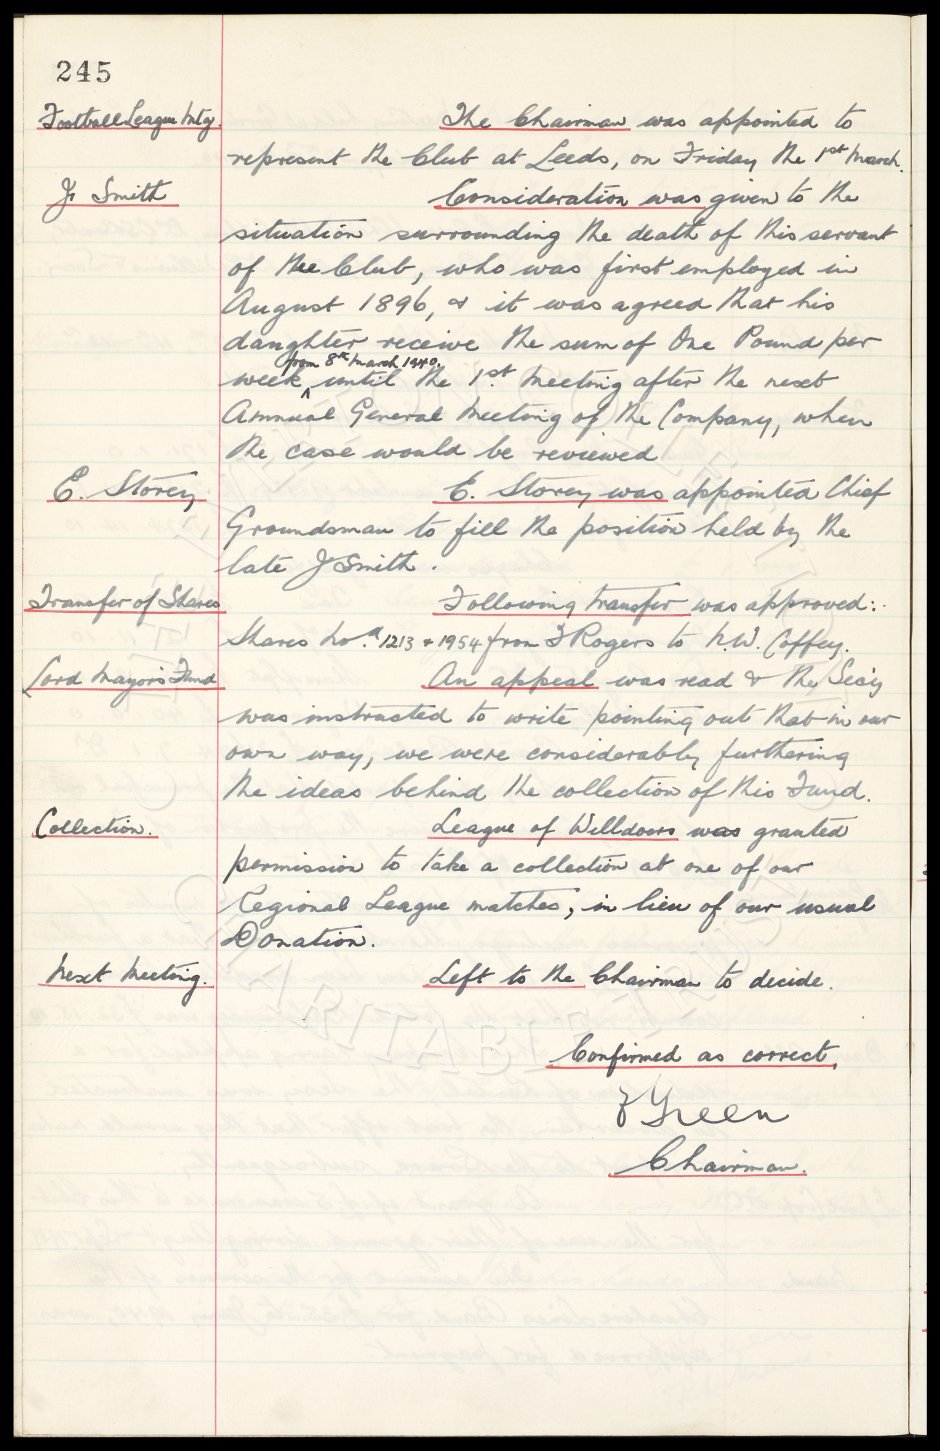 245
Football League Mtg. The Chairman was appointed to
represent the Club at Leeds, on Friday the 1st March.
Jr Smith Consideration was given to the
situation surrounding the death of this servant
of the Club, who was first employed in
August 1896, & it was agreed that his
daughter receive the sum of One Pound per
from 8th March 1940.
week, until the 1st. Meeting after the next
Annual General Meeting of the Company, when
the case would be reviewed
E. Storey E. Storey was appointed Chief
Groundsman to fill the position held by the
late Jr Smith.
Transfer of Shares Following transfer was approved:.
Shares Nos. 1213 & 1954 from T Rogers to N.W. Coffey.
Lord Mayor's Fund An appeal was read & the Sec'y
was instructed to write pointing out that in our
own way, we were considerably furthering
the ideas behind the collection of this Fund.
Collection. League of Welldoers was granted
permission to take a collection at one of our
Regional League matches, in lieu of our usual
Donation.
Next Meeting. Left to the Chairman to decide.
Confirmed as correct,
Green
Chairman.
CHARITABLE TRUST